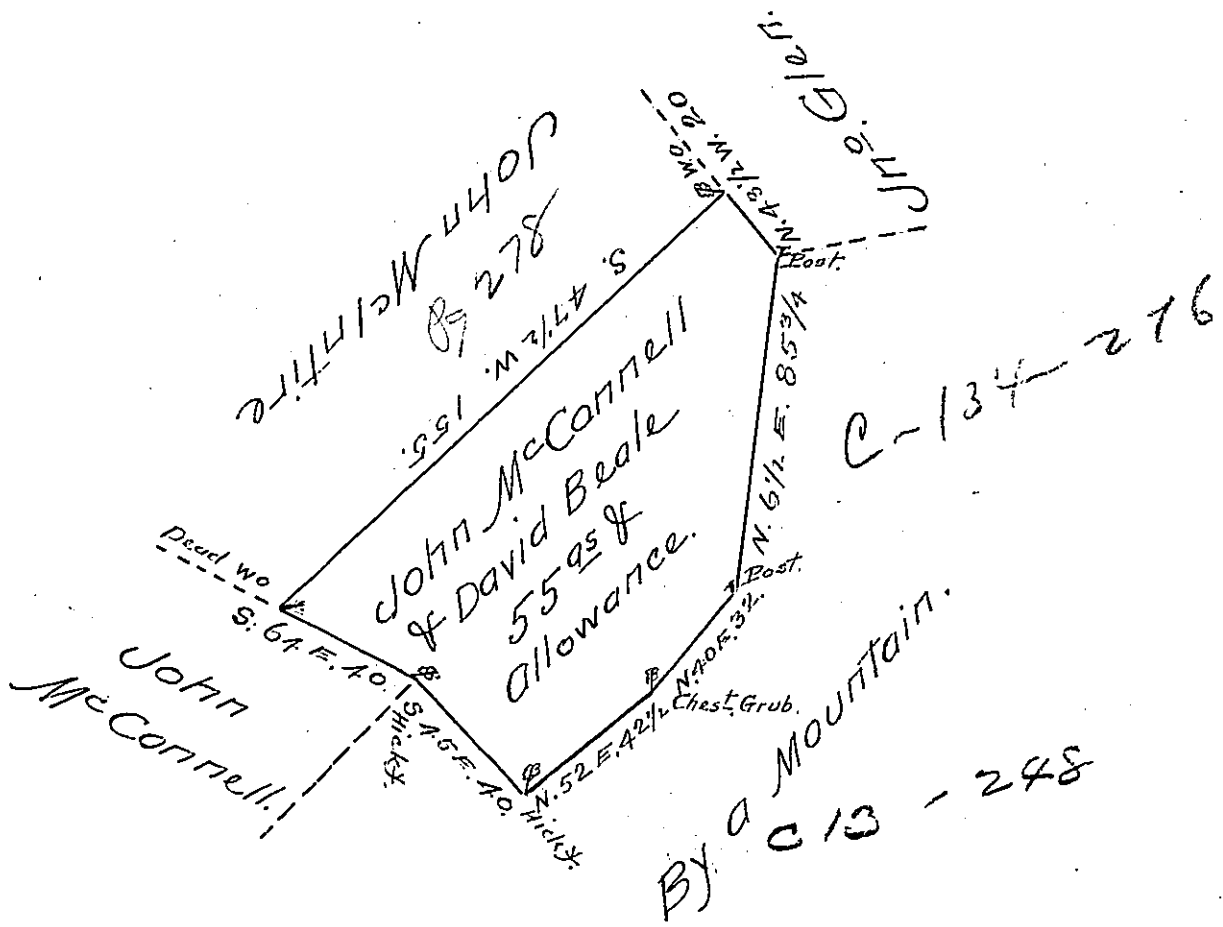 Jno. Glen.
John McIntire
278
W O
N. 43 1/2 W. 20
Post.
S. 47 1/2 W. 155.
N. 6 1/2 E. 85 3/4
C-134-276
John McConnell
& David Beale
55 as &
allowance.
Dead WO
S. 64. E. 40.
John
McConnell.
Hicky.
S 45 E. 40.
Hicky.
N. 52 E. 42 1/2
Chest. Grub.
N. 40 E. 32.
Post.
By a Mountain.
C 13 - 248